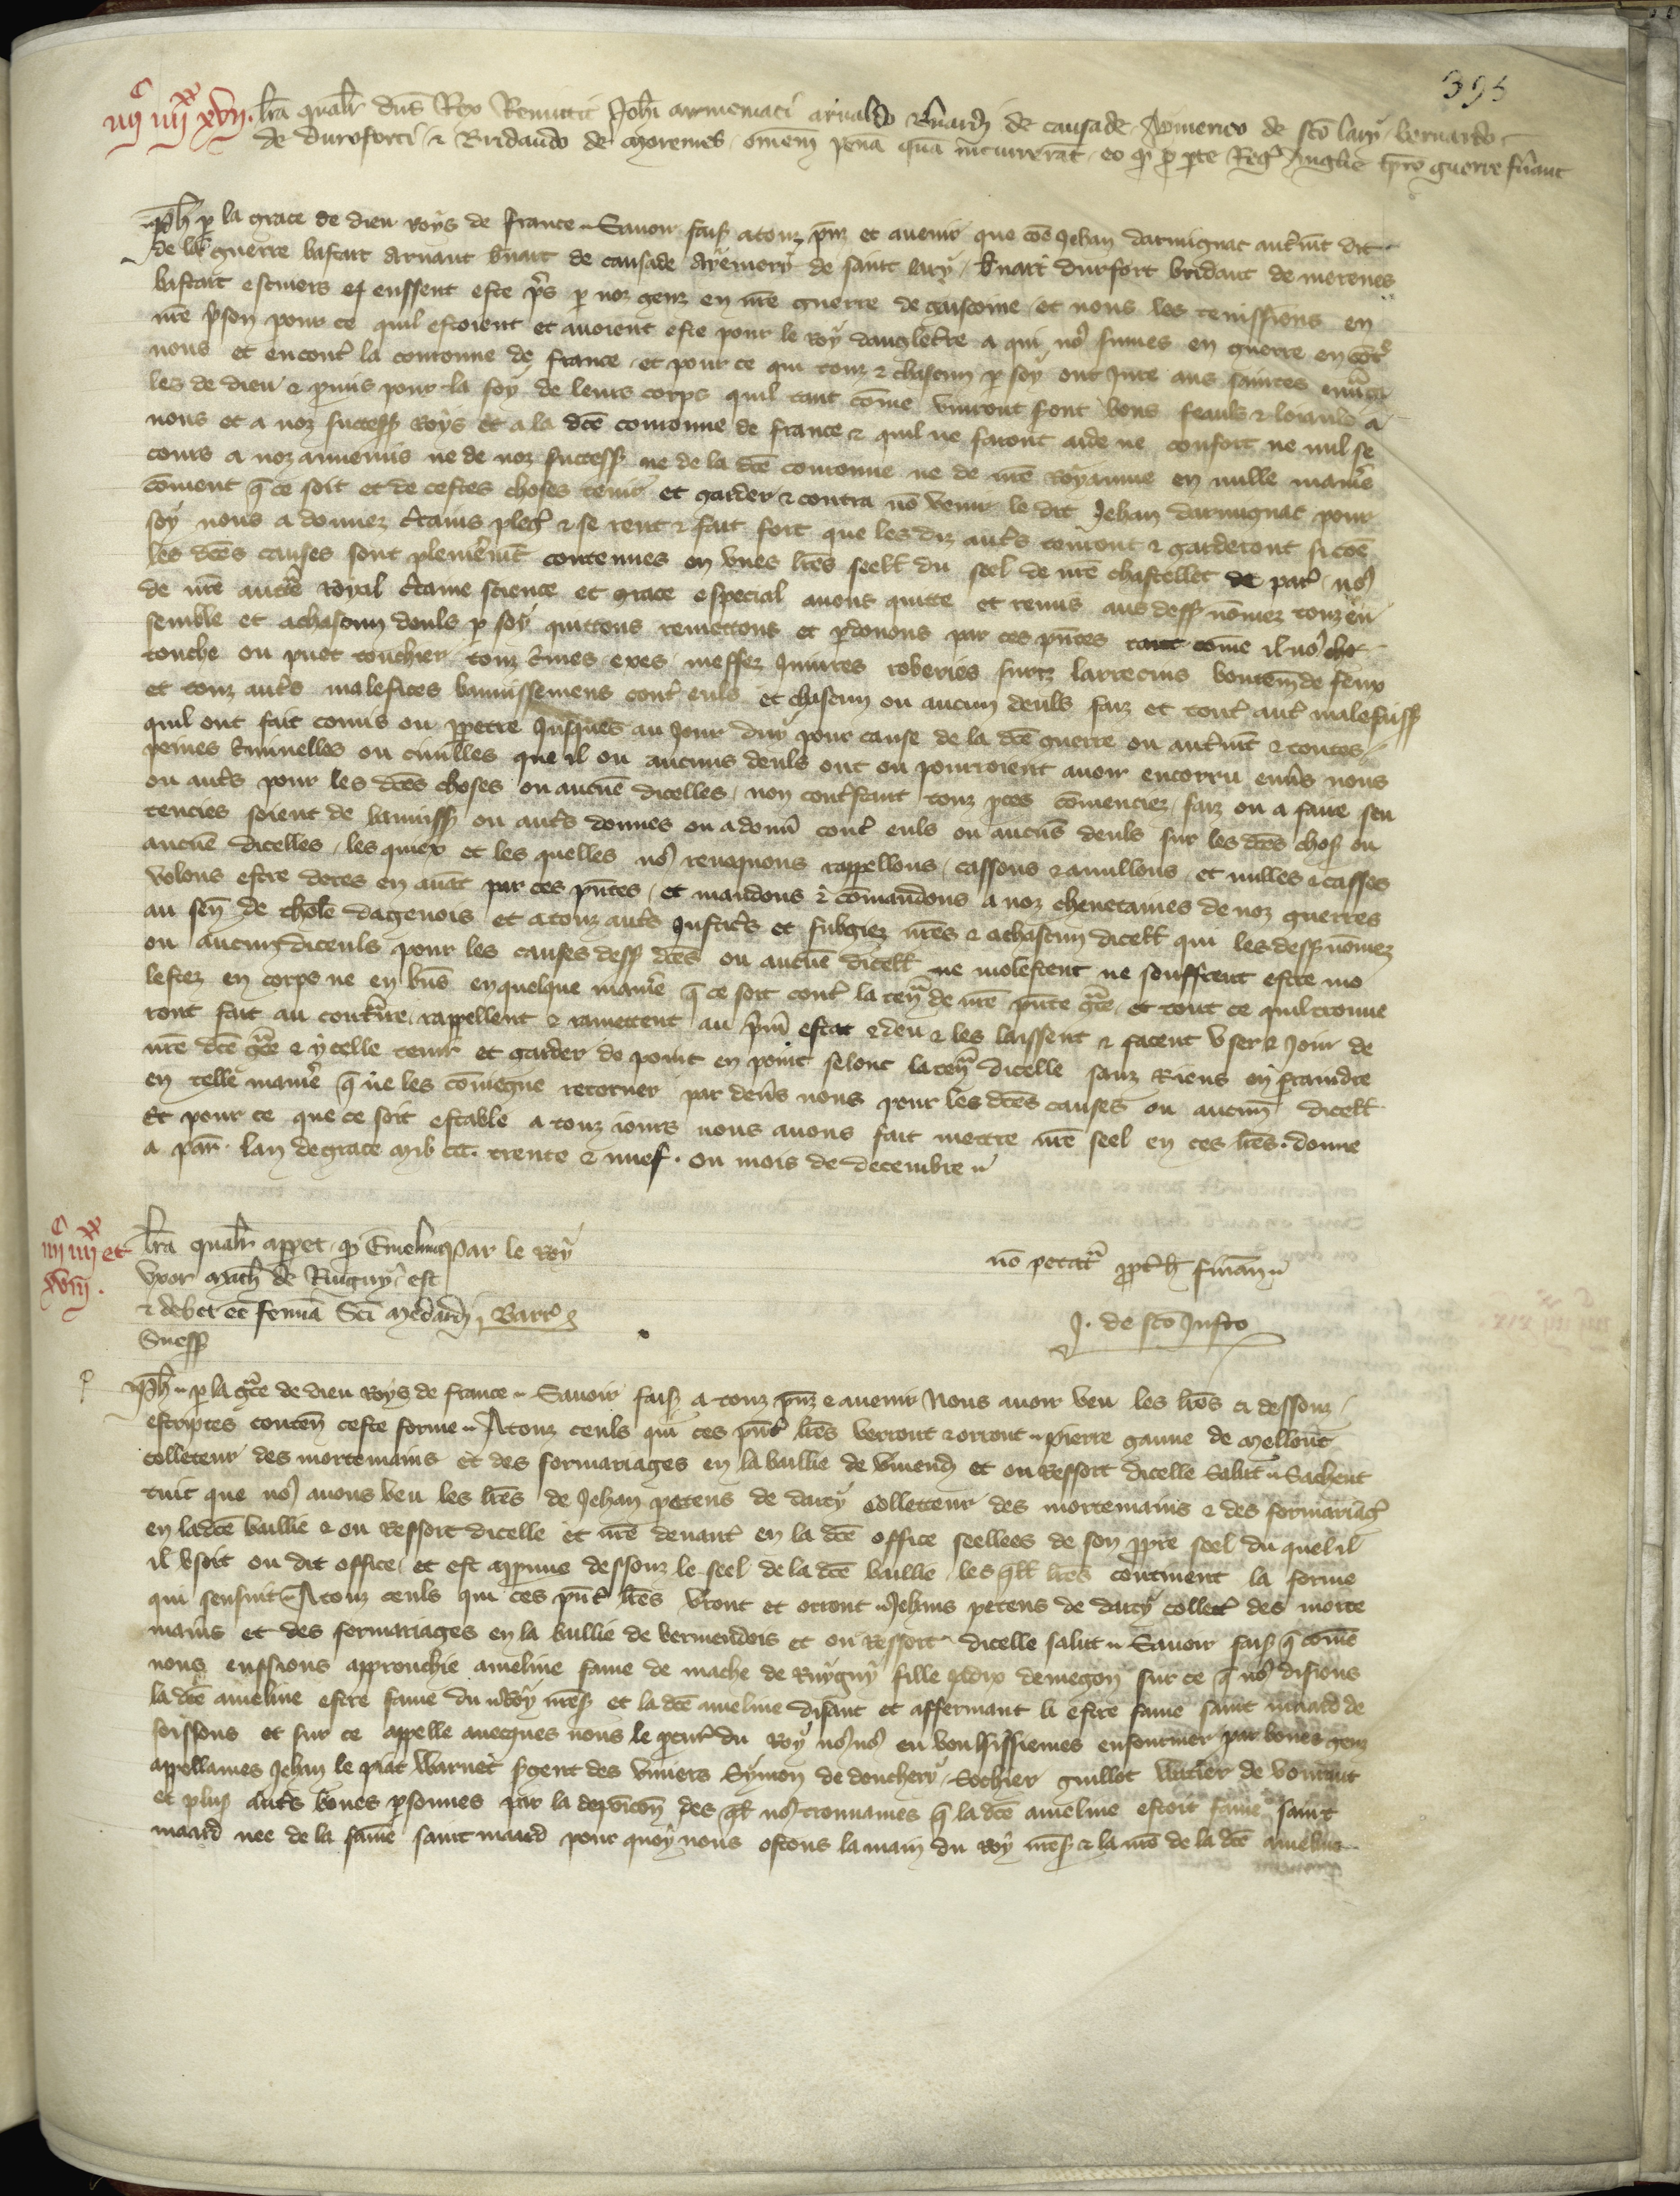 395
iiijc iiijxx xvij. lra qualr dns Rex Remittit Johi armeniaci arnaldo bnardi de causade Aymerico de sco lary bernardo
de duroforti & Bridaudo de moremes omem penā quā incurrerāt eo qd p pte Regs Anglie tpre guerre fūant
Ph p la grace de dieu roys de france Savoir fais a touz pnz et avenir que cōe Jehan darmignac autrmt dit
de la guerre bastart arnaut bnart de causade aymery de saint lary bnart durfort bridaut de moremes
bastart escuiers eussent este prs p noz genz en nre guerre de gascoine et nous les tenissions en
nre prson pour ce quil estoient et avoient este pour le roy dangleterre a qui nos sumes en guerre encontre
nous et encontr la couronne de france et pour ce qui touz & chascun p soy ont jure aus saintes euvāgi
les de dieu & pmis pour la foy de leurs corps quil tant cōme vivront seront bons feauls & loiauls a
nous et a noz success roys et a la dce couronne de france & quil ne feront aide ne confort ne nul se
cours a noz annemis ne de noz success ne de la dce couronne ne de nre royaume en nulle manre
cōment q ce soit et de cestes choses tenir et garder & contra nō venir le dit Jehan darmignac pour
soy nous a donnez crtains pleges & se rent & fait fort que les diz autrs tenront & garderont si cōe
les dces causes sont plenemēt contenues en unes lres seell du seel de nre chastellet de par nos
de nre aucte royal crtaine science et grace especial avons quitte et remis aus dess nōmez touz en
semble et a chascun deuls p soy quittons remettons et pdonons par ces pntes tant cōme il nos
touche ou puet touchier touz crimes exes meffez Iniures roberies furtz larrecins boutem de feux
et touz autrs malefices bannissemens contr euls et chascun ou aucun deuls faiz et tout autr malefaiss
quil ont fait comis ou ppetre jusques au jour duy pour cause de la dce guerre ou autrmt & toutes
peines criminelles ou civilles que il ou aucuns deuls ont ou pourroient avoir encorru envs nous
ou autrs pour les dces choses ou aucune dicelles non contrstant touz pces cōmenciez faiz ou a faire sen
tencies soient de banniss ou autrs donnes ou a donnr contr euls ou aucuns deuls sur les dces chos ou
aucune dicelles les quiex et les quelles nos revoquons rappellons cassons & anullons et nulles & casses
volons estre dores en avāt par ces pntes et mandons & cōmandons a noz chevetaines de noz guerres
au sen de thole dagenois et a touz autrs justicrs et subgiez nres & a chascun dicell qui les dess nōmez
ou aucun diceuls pour les causes dess dces ou aucune dicell ne molestent ne souffrent estre mo
lestez en corps ne en bns en quelque manre q ce soit contr la ten de nre pnte gce et tout ce quil trouve
ront fait au contrre rappellent & ramettent au prm estat & deu & les laissent & facent user & joir de
nre dce gce & ycelle tenir et garder de point en point selonc la ten dicelle sanz riens enfraindre
en telle manre q ne les coviegne retorner par devs nous pour les dces causes ou aucun dicell
Et pour ce que ce soit estable a touz iours nous avons fait mettre nre seel en ces lres. donne
a par. lan de grace mil ccc. trente & nuef. ou mois de decembre
iiijc iiijxx et xviij. lra qualr appet qd Emelina Par le Roy
uxor Mach de Ruguy est
& debet ee femina Sci Medardi Barr
Suess
nō petatr ppt h finan
J. de sco Justo
Ph p la gce de dieu roys de france Savoir fais a touz pnz & avenir Nous avoir veu les lres ci dessouz
escriptes conten ceste forme A touz ceuls qui ces pnt lres verront & orront pierre gaune de mellout
colleteur des mortemains et des formariages en la baillie de vmend et ou ressort dicelle Salut Sachent
tuit que nos avons veu les lres de Jehan petens de darcy colleteur des mortemains & des formariag
en ladce baillie & ou ressort dicelle et nre devantr en la dce office seellees de son ppre seel du quel il
il usoit ou dit office et est appme dessouz le seel de la dce baillie les qll lres contienent la forme
qui sensuit A touz ceuls qui ces pnt lres vront et orront Jehans petens de darcy collect des morte
mains et des formariages en la baillie de vermendois et ou ressort dicelle salut Savoir fais q cōme
nous eussions approuchie ameline fame de mache de Ruyguy fille demegon sur ce q nos disions
la dce ameline estre fame du Roy mess et la dce ameline disant et affermant li estre fame saint maard de
soissons et sur ce appelle avecques nous le pcur du Roy nos nos en vousissiemes enformer par bones genz
appellames Jehan le piat Warnet sgent des viviers Symon de donchery Sohier guillot Wicier de
et plus autrs bones psonnes par la deposicon des ql nos trouvames q la dce ameline estoit fame saint
maard nee de la fame saint maard pour quoy nous ostons la main du Roy mess & la nre de la dce ameline